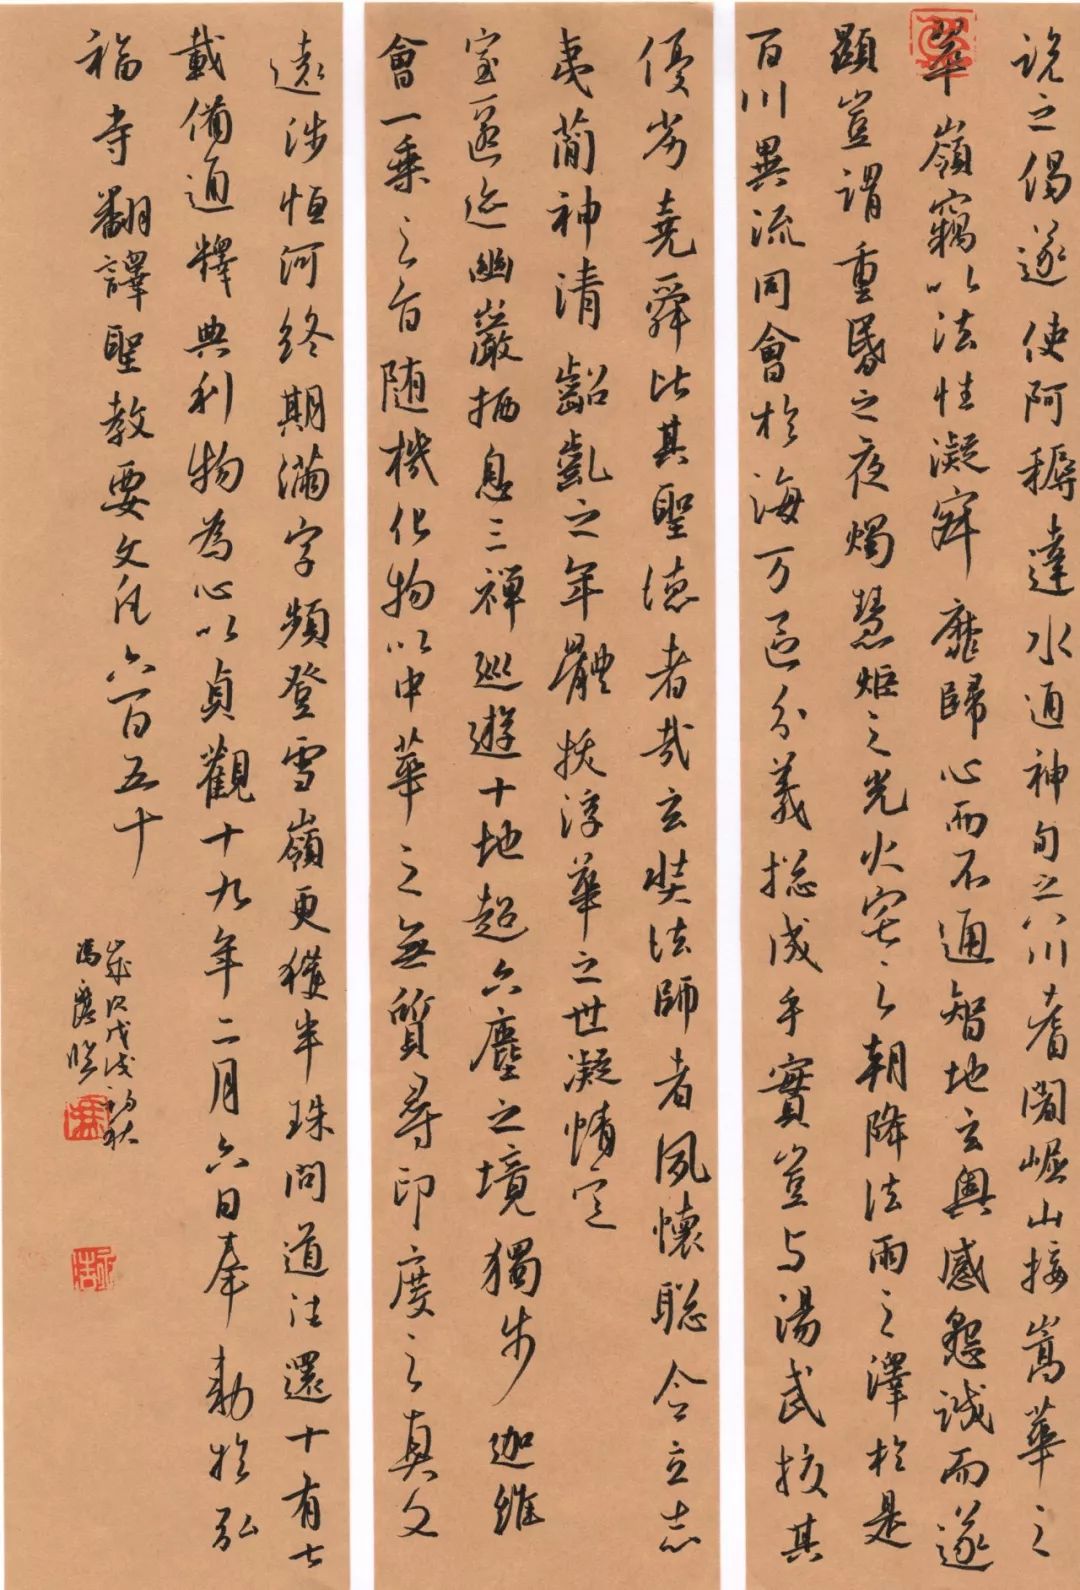 說之偈遂使阿耨達水通神甸之八川耆闍崛山接嵩華之
翠嶺竊以法性凝寂靡歸心而不通智地玄奧感懇誠而遂
顯豈謂重昏之夜燭慧炬之光火宅之朝降法雨之澤於是
百川異流同會於海万區分義揔成乎實豈与湯武挍其
優劣堯舜比其聖德者哉玄奘法師者夙懷聡令立志
夷簡神清齠齔之年體拔浮華之世凝情定
室匿迹幽巖栖息三禪巡遊十地超六塵之境獨步迦維
會一乘之旨随機化物以中華之無質尋印度之真文
遠涉恒河終期滿字頻登雪嶺更獲半珠問道往還十有七
載備通釋典利物為心以貞觀十九年二月六日奉勅於弘
福寺翻譯聖教要文凡六百五十
歲次戊戌初秋